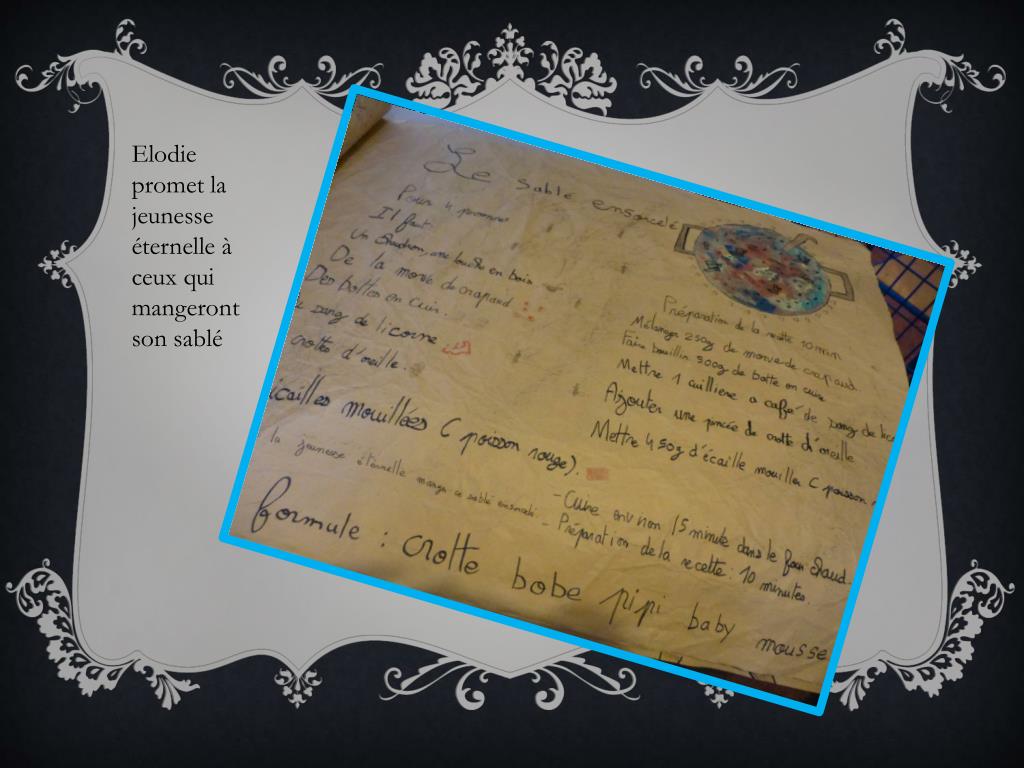 Elodie
promet la
jeunesse
éternelle à
ceux qui
mangeront
son sablé
Le sablé ensorcelé
Pour 4 personnes
Il faut
Un chaudron, une louche en bois
De la morve de crapaud
Des bottes en cuir.
sang de licorne
crotte d'oreille.
écailles mouillées (poisson rouge).
la jeunesse éternelle mange ce sablé ensorcelé
Préparation de la recette 10 min
Mélanger 250g de morve de crapaud.
Faire bouillir 500g de botte en cuir
Mettre 1 cuillière a caffé de sang de lico
Ajouter une pincée de crotte d'oreille
Mettre 450g d'écaille mouiller (poisson
- Cuire environ 15 minute dans le four chaud.
- Préparation de la recette : 10 minutes.
formule : crotte bobe pipi baby mousse